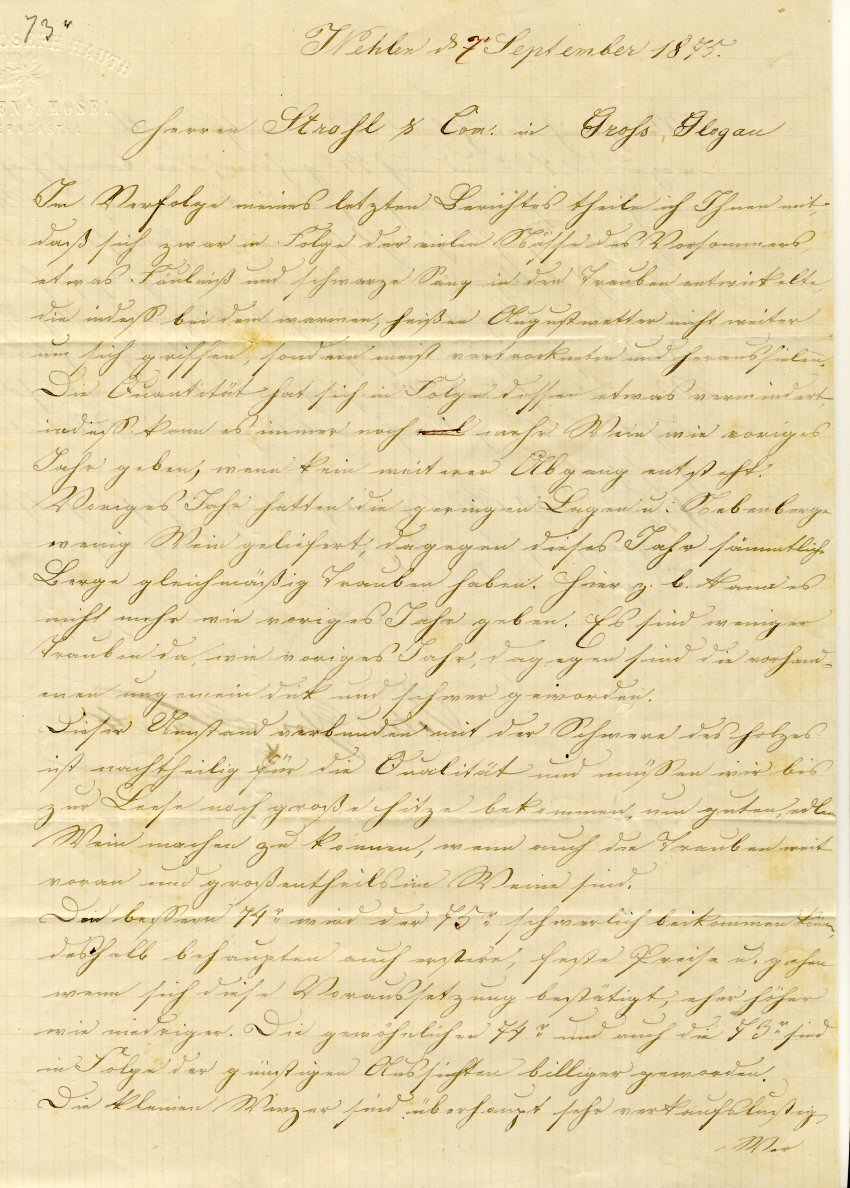 73r
Wehlen d 7t September 1875.
Herren Strahl & Com: in Gross Glogau
Im Verfolge meines letzten Berichtes theile ich Ihnen mit,
daß sich zwar in Folge der vielen Nässe des Vorsommers,
etwas Fäulniß und schwarze Sang in den Trauben entwickelte
die indeß bei dem warmen, heißen Augustwetter nicht weiter
um sich griffen, sondern meist vertrockneten und herausfielen.
Die Quantität hat sich in Folge dessen etwas vermindert,
indeß kann es immer noch viel mehr Wein wie voriges
Jahr geben, wenn kein weiterer Abgang entsteht.
Voriges Jahr hatten die geringen Lagen u: Nebenberge
wenig Wein geliefert, dagegen dieses Jahr sämmtliche
Berge gleichmäßig Trauben haben. Hier z. b. kann es
nicht mehr wie voriges Jahr geben. Es sind weniger
Trauben da, wie voriges Jahr, dagegen sind die vorhand-
enen ungemein dick und schwer geworden.
Dieser Umstand verbunden mit der Schwere des Holzes
ist nachtheilig für die Qualität und müssen wir bis
zur Leese noch große Hitze bekommen, um guten, edlen
Wein machen zu können, wenn auch die Trauben weit
voran und großentheils im Weine sind.
Den bessern 74r wird der 75r schwerlich beikommen können,
deshalb behaupten auch erstere, feste Preise u. gehen
wenn sich diese Voraussetzung bestätigt, eher höher
wie niedriger. Die gewöhnlichen 74r und auch die 73r sind
in Folge der günstigen Aussichten billiger geworden.
Die kleinen Winzer sind überhaupt sehr verkaufslustig,
Wer